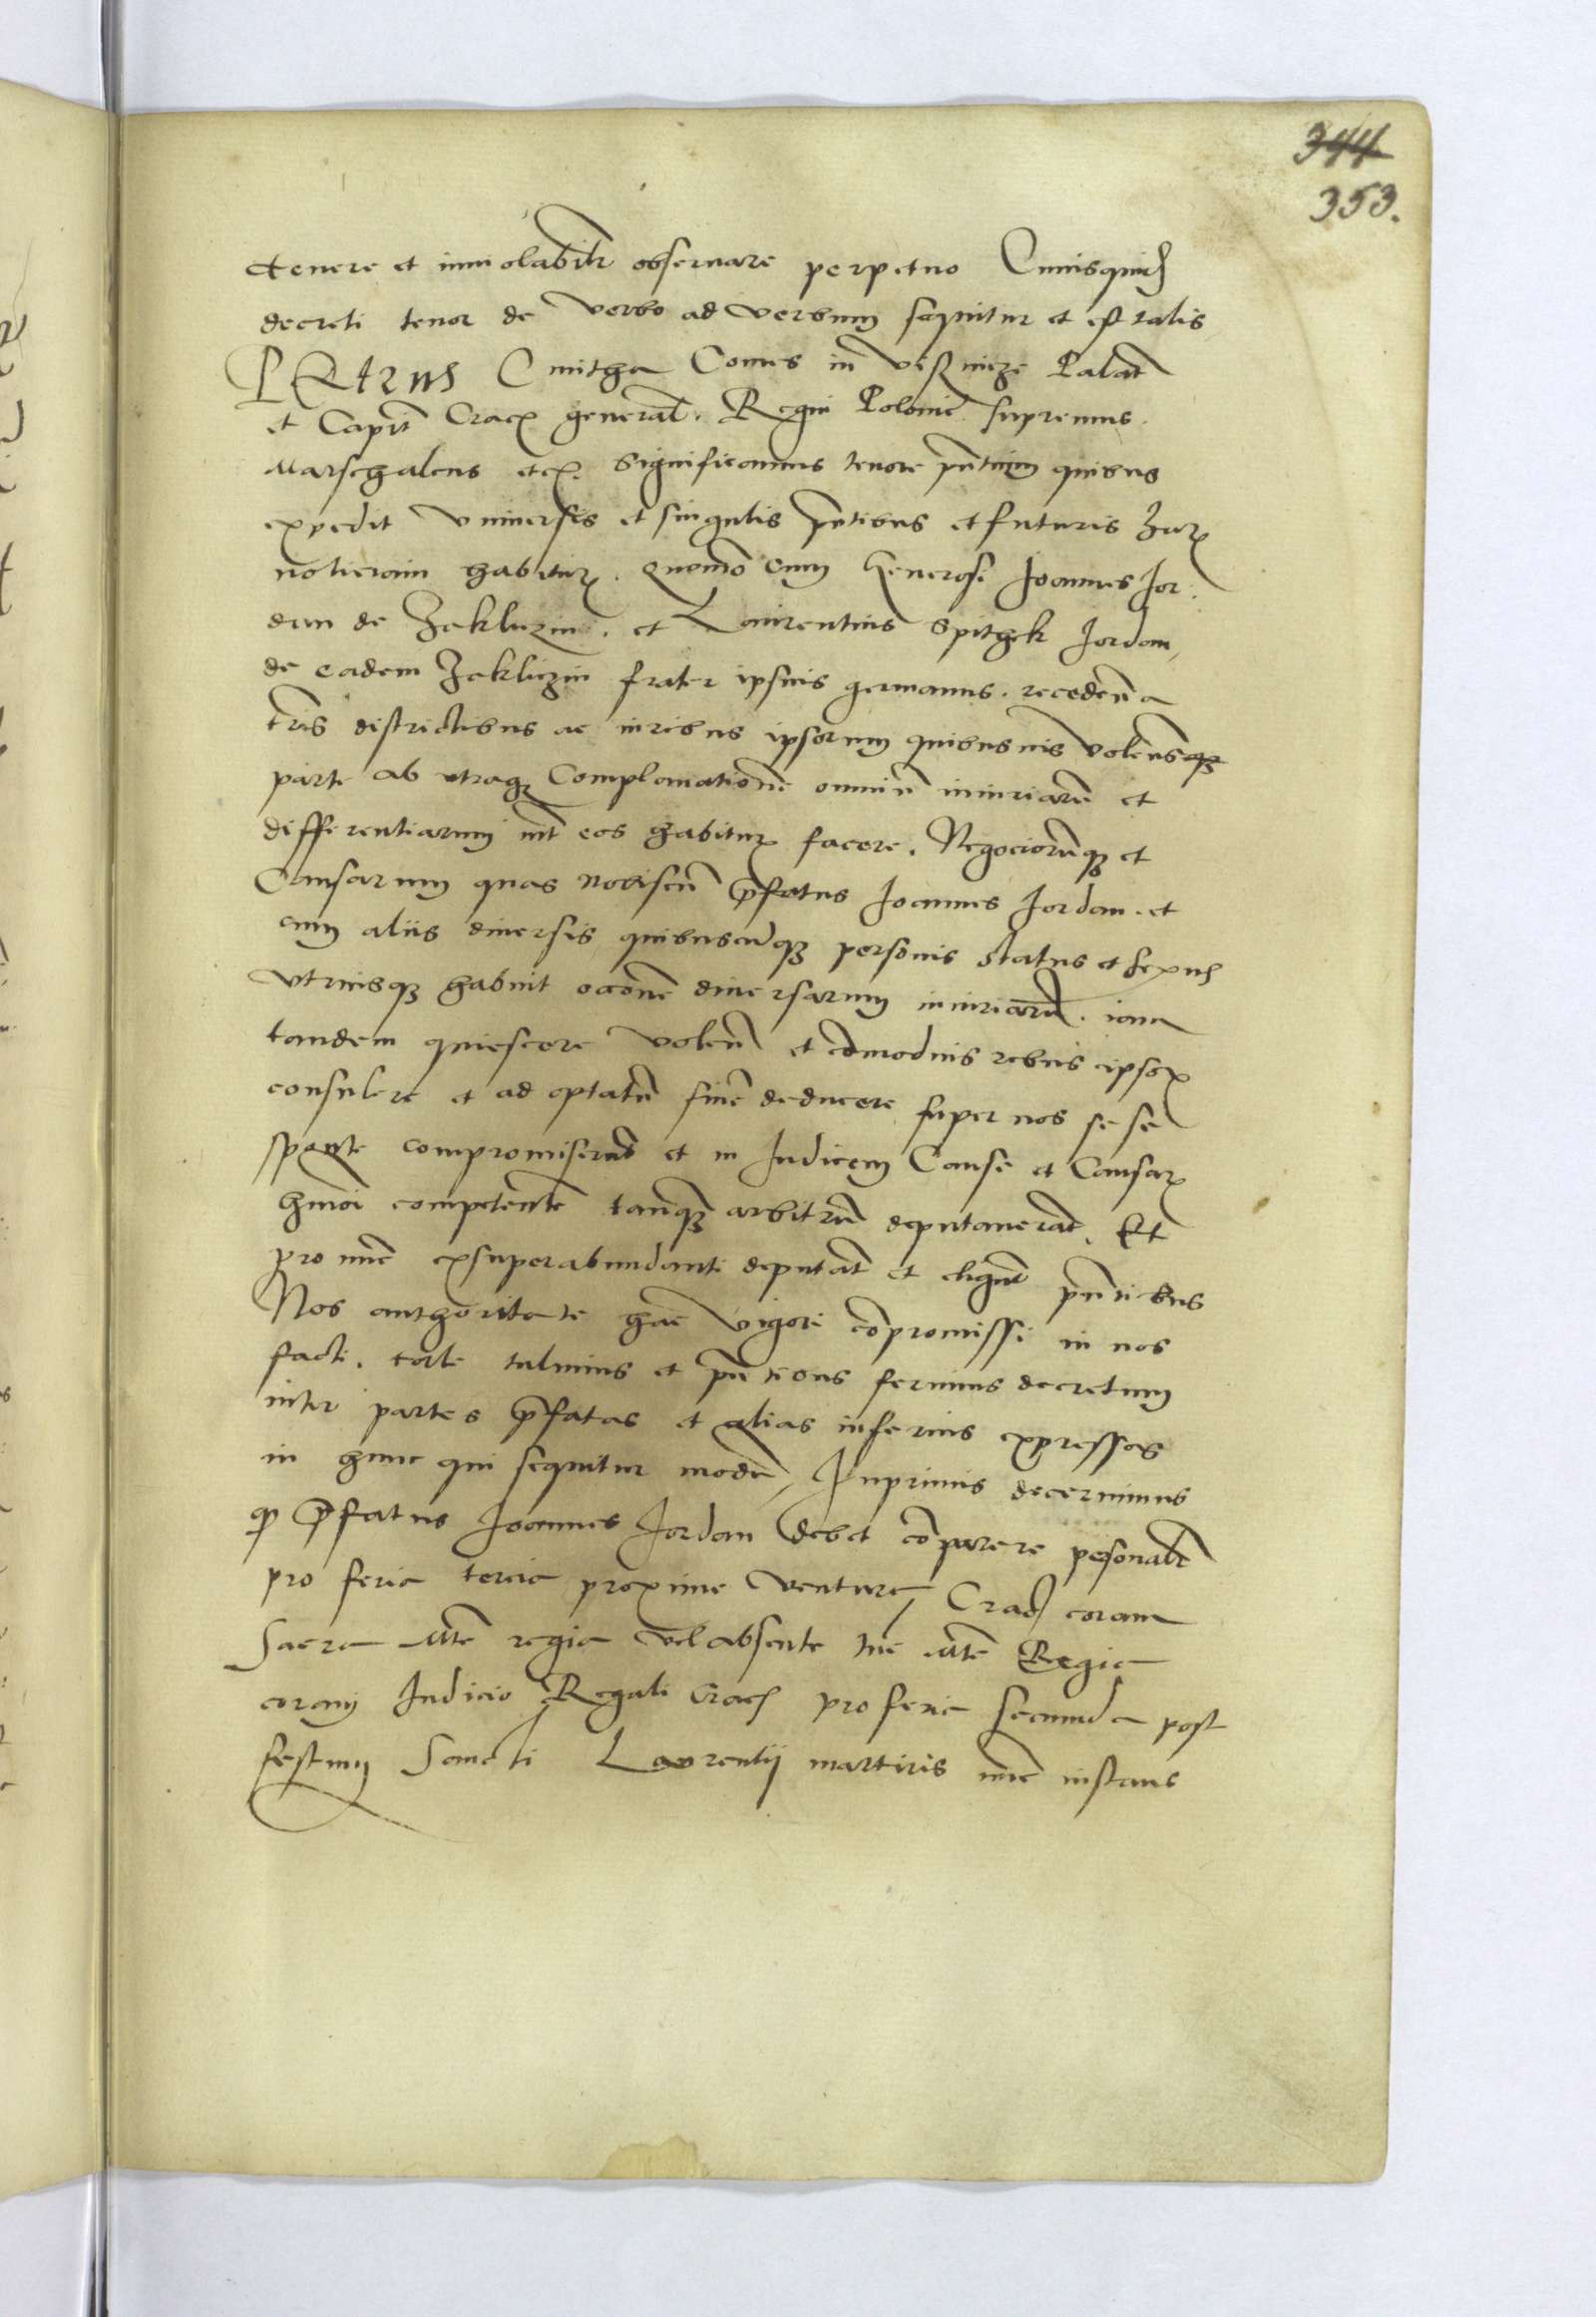 344
353.
tenere et inviolabilr observare perpetuo Cuiusquid
decreti tenor de verbo ad verbum sequitur et est talis
PETRUS Cmitha Comes in Visnicze Palat
et Capit Crac general. Regni Polonie supremus
Marschalcus etc. Significamus tenore pntium quibus
expedit Universis et singulis pntibus et futuris har
noticiam habitur. quomo cum Generosi Joannes Jor
dan de Zakluzin. et Laurentius Spithek Jordan
de eadem Zakliczin frater ipsius germanus. recedena
tris districtibus ac iuribus ipsorum quibusvis volensq
parte ab utraq Complanatione omniu iniuriare et
differentiarum int eos habitur facere. Negociorumq et
Causarum quas nobiscu pfatus Joannes Jordan. et
cum aliis diversis quibuscuq personis status et sexus
utriusq habuit occone diversarum iniuriaru. iam
tandem quiescere volen et comodius rebus ipsor
consulere et ad optatu fine deducere super nos se se
sponte compromiserut et in Judicem Cause et Causar
hmoi competente tanq arbitru deputaverat. Et
pro nuc exsuperabundanti deputat et eligut pntibus
Nos authoritate hac vigore compromissi in nos
facti. tale tulimus et pntibus ferimus decretum
inter partes pfatas et alias inferius expressas
in hunc qui sequitur modu, Inprimis decernimus
q pfatus Joannes Jordan debet coparere personalr
pro feria tercia proxime ventura Crac coram
Sacra Mte regia vel absente tuc Mte Regia
coram Judicio Regali Crac pro feria Secunda post
festum Sancti Laurentii martiris nuc instans